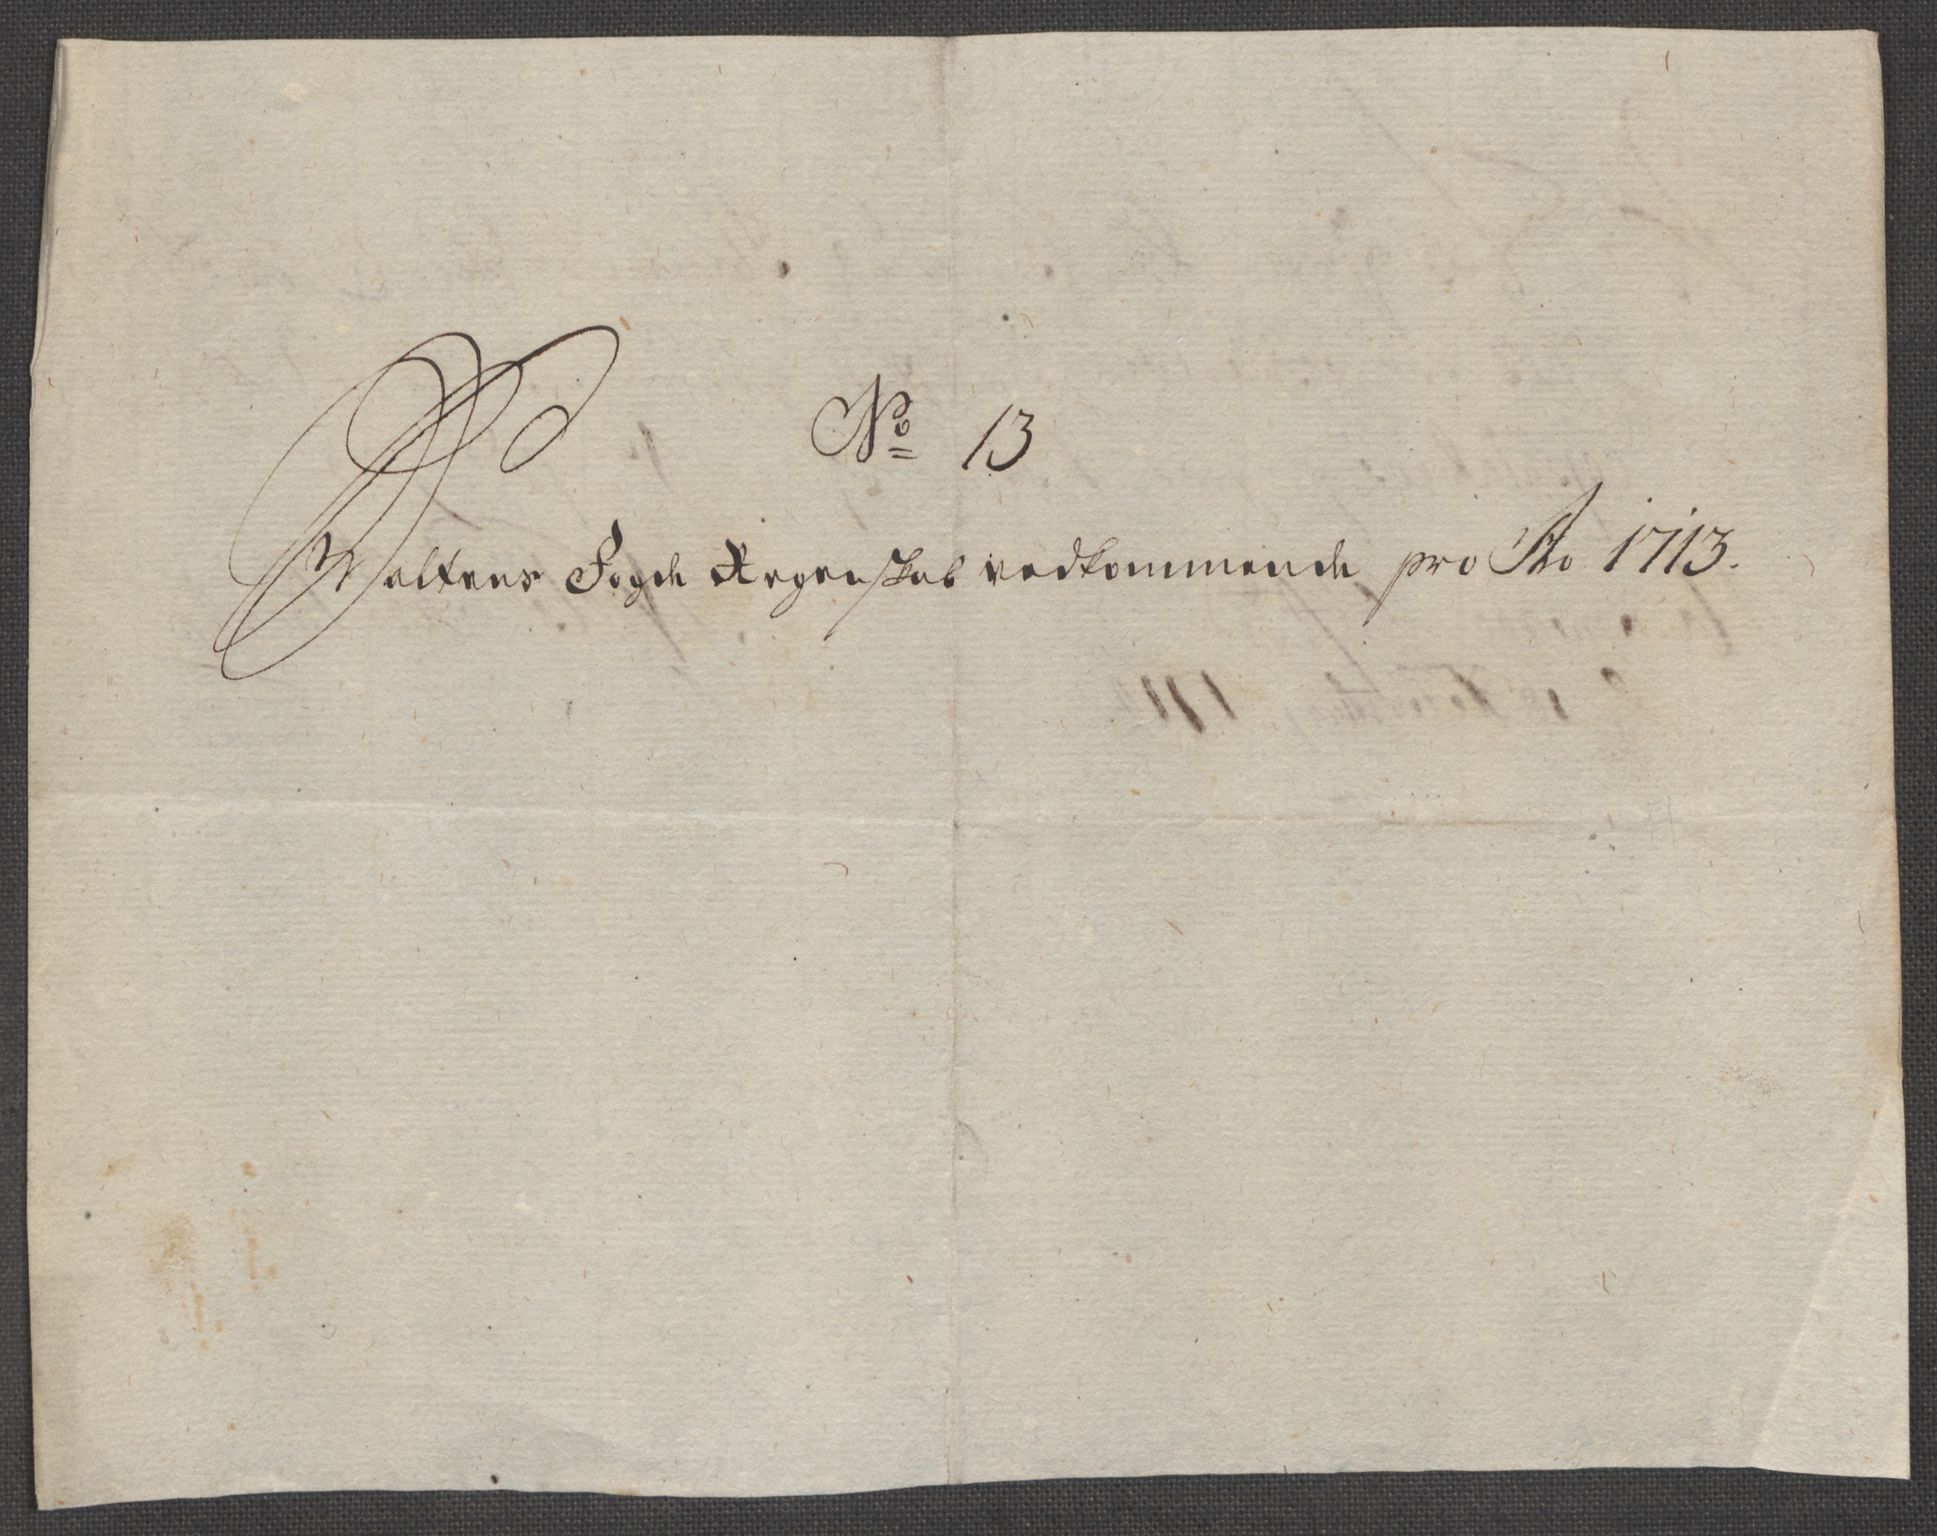 No 13
Saltens Fogde Regenskab vedkommende pro Ao 1713.